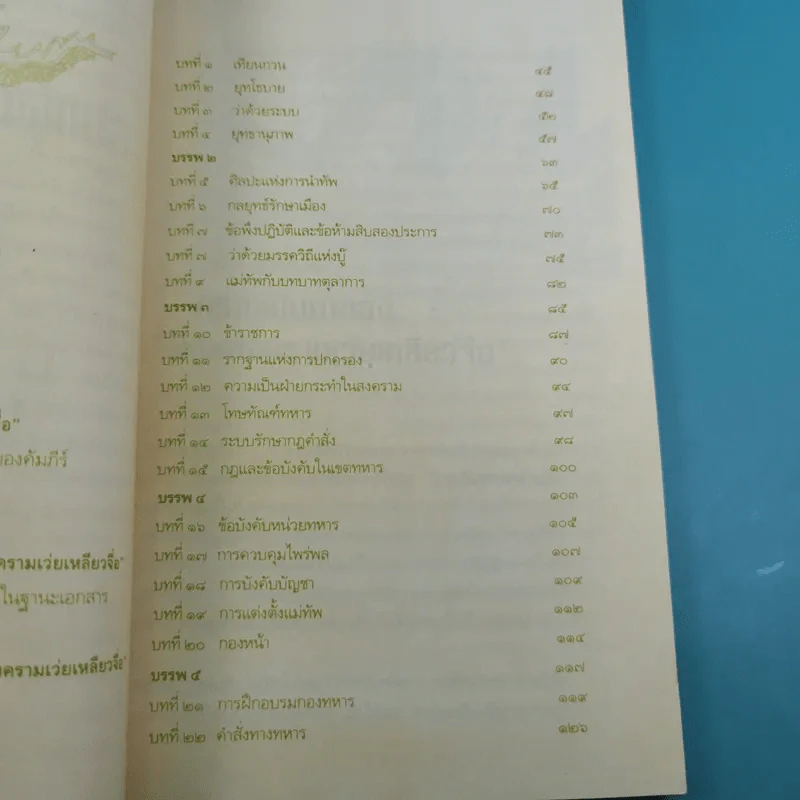 บทที่ ๑ เทียนกวน ๔๕
บทที่ ๒ ยุทโธบาย ๔๘
บทที่ ๓ ว่าด้วยระบบ ๕๒
บทที่ ๔ ยุทธานุภาพ ๕๗
บรรพ ๒ ๖๓
บทที่ ๕ ศิลปะแห่งการนำทัพ ๖๕
บทที่ ๖ กลยุทธ์รักษาเมือง ๗๐
บทที่ ๗ ข้อพึงปฏิบัติและข้อห้ามสิบสองประการ ๗๓
บทที่ ๗ ว่าด้วยมรรควิถีแห่งบู๊ ๗๕
บทที่ ๙ แม่ทัพกับบทบาทตุลาการ ๘๒
บรรพ ๓ ๘๕
บทที่ ๑๐ ข้าราชการ ๘๗
บทที่ ๑๑ รากฐานแห่งการปกครอง ๙๐
บทที่ ๑๒ ความเป็นฝ่ายกระทำในสงคราม ๙๔
บทที่ ๑๓ โทษทัณฑ์ทหาร ๙๗
บทที่ ๑๔ ระบบรักษากฎคำสั่ง ๙๘
บทที่ ๑๕ กฎและข้อบังคับในเขตทหาร ๑๐๐
บรรพ ๔ ๑๐๓
บทที่ ๑๖ ข้อบังคับหน่วยทหาร ๑๐๕
บทที่ ๑๗ การควบคุมไพร่พล ๑๐๗
บทที่ ๑๘ การบังคับบัญชา ๑๐๙
บทที่ ๑๙ การแต่งตั้งแม่ทัพ ๑๑๒
บทที่ ๒๐ กองหน้า ๑๑๔
บรรพ ๕ ๑๑๗
บทที่ ๒๑ การฝึกอบรมกองทหาร ๑๑๙
บทที่ ๒๒ คำสั่งทางทหาร ๑๒๖
ของคัมภีร์
ครามเว่ยเหลียวจื่อ"
ในฐานะเอกสาร
งครามเว่ยเหลียวจื่อ"